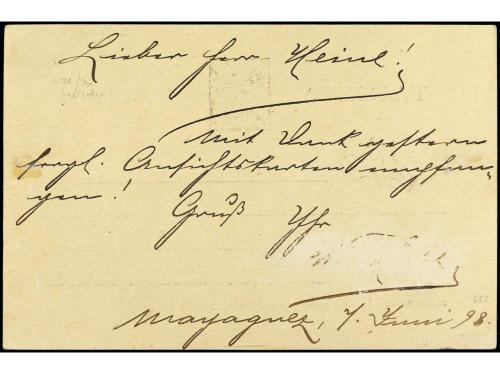 Lieber Herr Heine!
Mit Dank gestern
sorgl. Ansichtskarten empfan-
gen!
Gruß Ihr
Mayaguez, 7. Juni 98.